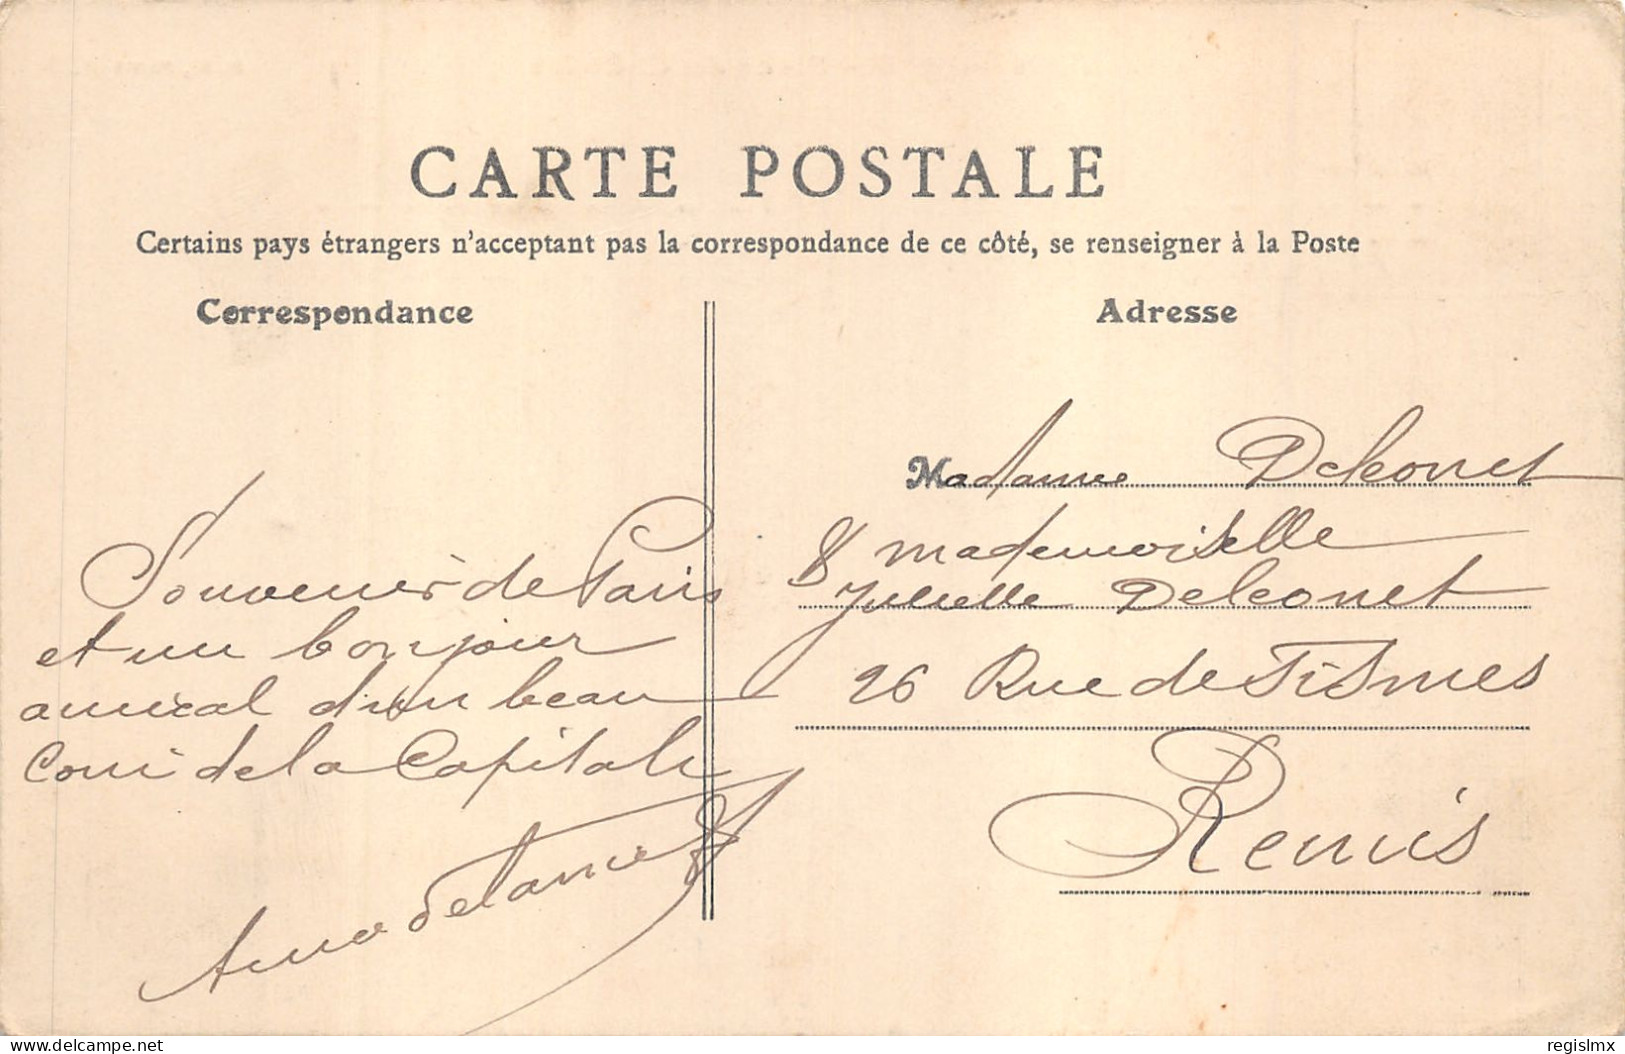 CARTE POSTALE
Certains pays étrangers n'acceptant pas la correspondance de ce côté, se renseigner à la Poste
Correspondance
Souvenir de Paris
et un bonjour
amical d'un beau
Coin de la Capitale
Adresse
Madame Delconet
& mademoiselle
Juliette Delconet
26 Rue de Fismes
Reims
delcampe.net
regislmx